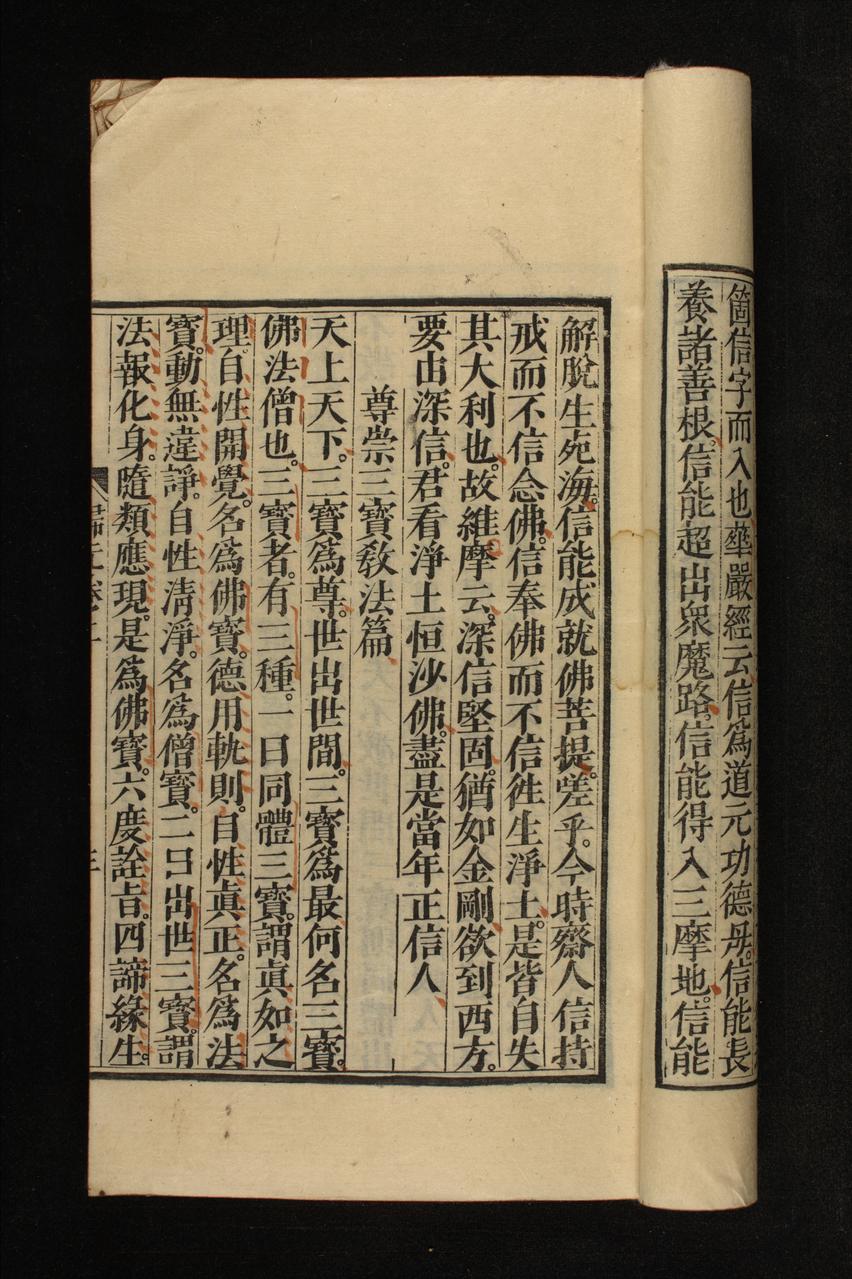 箇信字而入也華嚴經云信爲道元功德母。信能長
養諸善根。信能超出衆魔路。信能得入三摩地。信能
解脫生死海。信能成就佛菩提。嗟乎。今時齋人信持
戒而不信念佛。信奉佛而不信徃生淨土。是皆自失
其大利也。故維摩云。深信堅固。猶如金剛欲到西方。
要由深信。君看淨土恒沙佛。盡是當年正信人
尊崇三寶敎法篇
天上天下。三寶爲尊。世出世間。三寶爲最何名三寳。
佛法僧也。三寶者。有三種。一曰同體三寶。謂眞如之
理。自性開覺。名爲佛寶。德用軌則。自性眞正。名爲法
寶。動無違諍。自性淸淨。名爲僧寶。二曰出世三寶。謂
法報化身。隨類應現。是爲佛寶。六度詮旨。四諦緣生。
歸元卷二
三